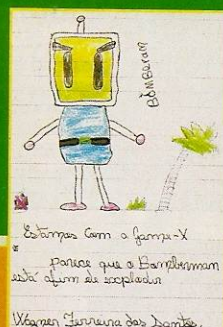 BOMBERAM
Estamos com a Game-X
parece que o Bomberman
está afim de explodir
Wagner Ferreira dos Santos